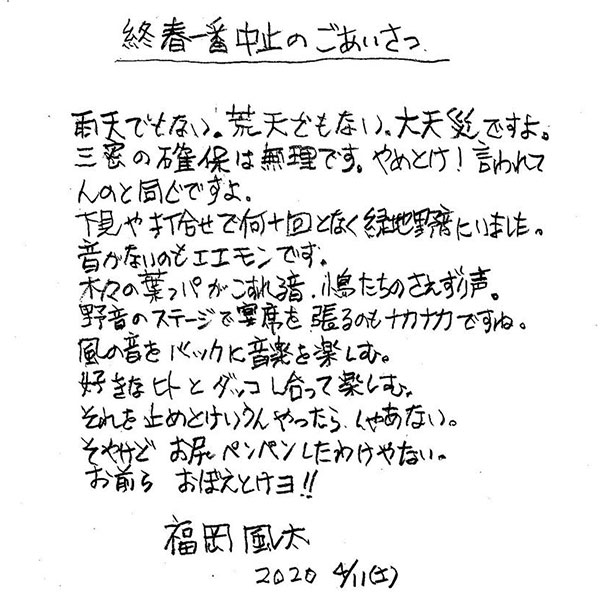 終春一番中止のごあいさつ
雨天でもない。荒天でもない。大天災ですよ。
三密の確保は無理です。やめとけ!言われて
んのと同じですよ。
下見や打合せで何十回となく緑地野音にいました。
音がないのもエエモンです。
木々の葉っパがこすれる音、小鳥たちのさえずり声。
野音のステージで宴席を張るのもナカナカですね。
風の音をバックに音楽を楽しむ。
好きなヒトとダッコし合って楽しむ。
それを止めとけいうんやったら、しゃあない。
そやけど お尻ペンペンしたわけやない。
お前ら おぼえとけヨ!!
福岡風太
2020 4/11(土)